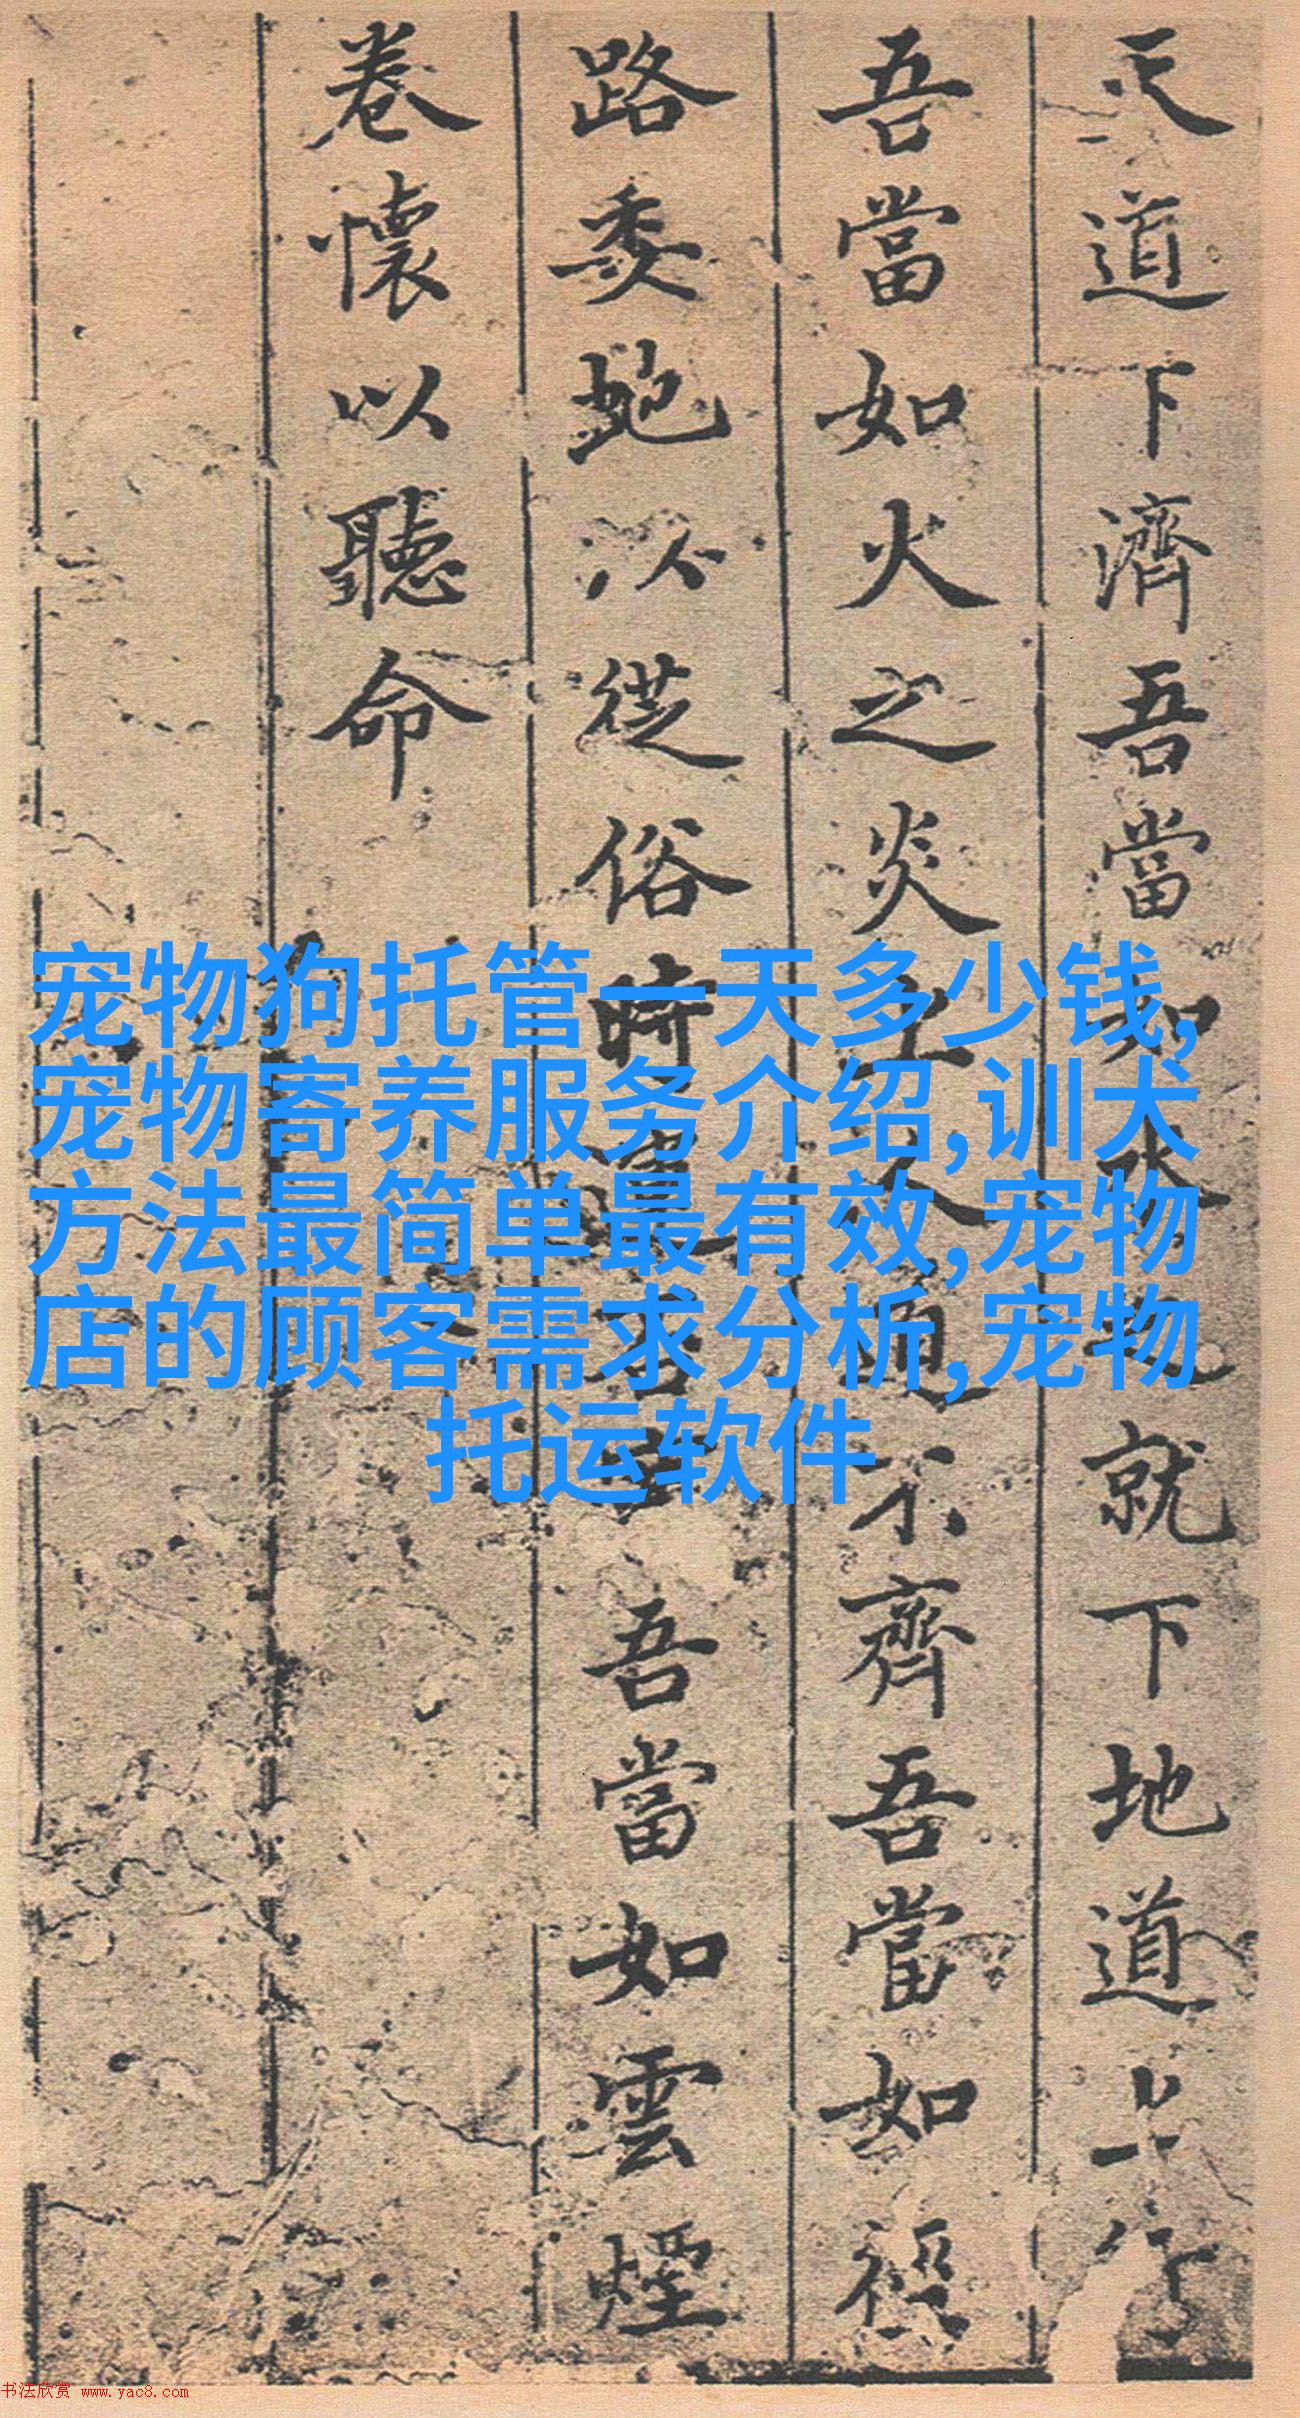 天道下濟吾當如水之就下地道上行
吾當如火之炎上人道不齊吾當如逕
路委虵以從俗時運否吾當如雲煙
卷懷以聽命
宠物狗托管一天多少钱,
宠物寄养服务介绍,训犬
方法最简单最有效,宠物
店的顾客需求分析,宠物
托运软件
书法欣赏 www.yac8.com